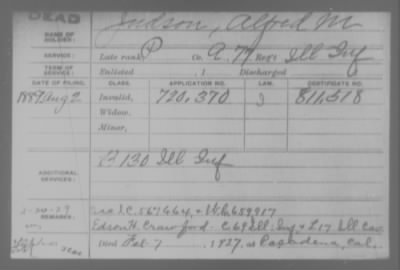 DEAD
NAME OF SOLDIER: Judson, Alfred M
SERVICE: Late rank P Co. A, 77 Reg't Ill Inf
TERM OF SERVICE: Enlisted , 1 Discharged
DATE OF FILING. CLASS. APPLICATION NO. LAW. CERTIFICATE NO.
1889 Aug 2 Invalid, 720,370 J 811,518
Widow,
Minor,
ADDITIONAL SERVICES: B 130 Ill Inf
REMARKS: C. 567664, + 659917
Edson H. Crawford. C 69 Ill. Inf + L 17 Ill Cav
Died Feb 7 1927, at Pasadena, Cal.